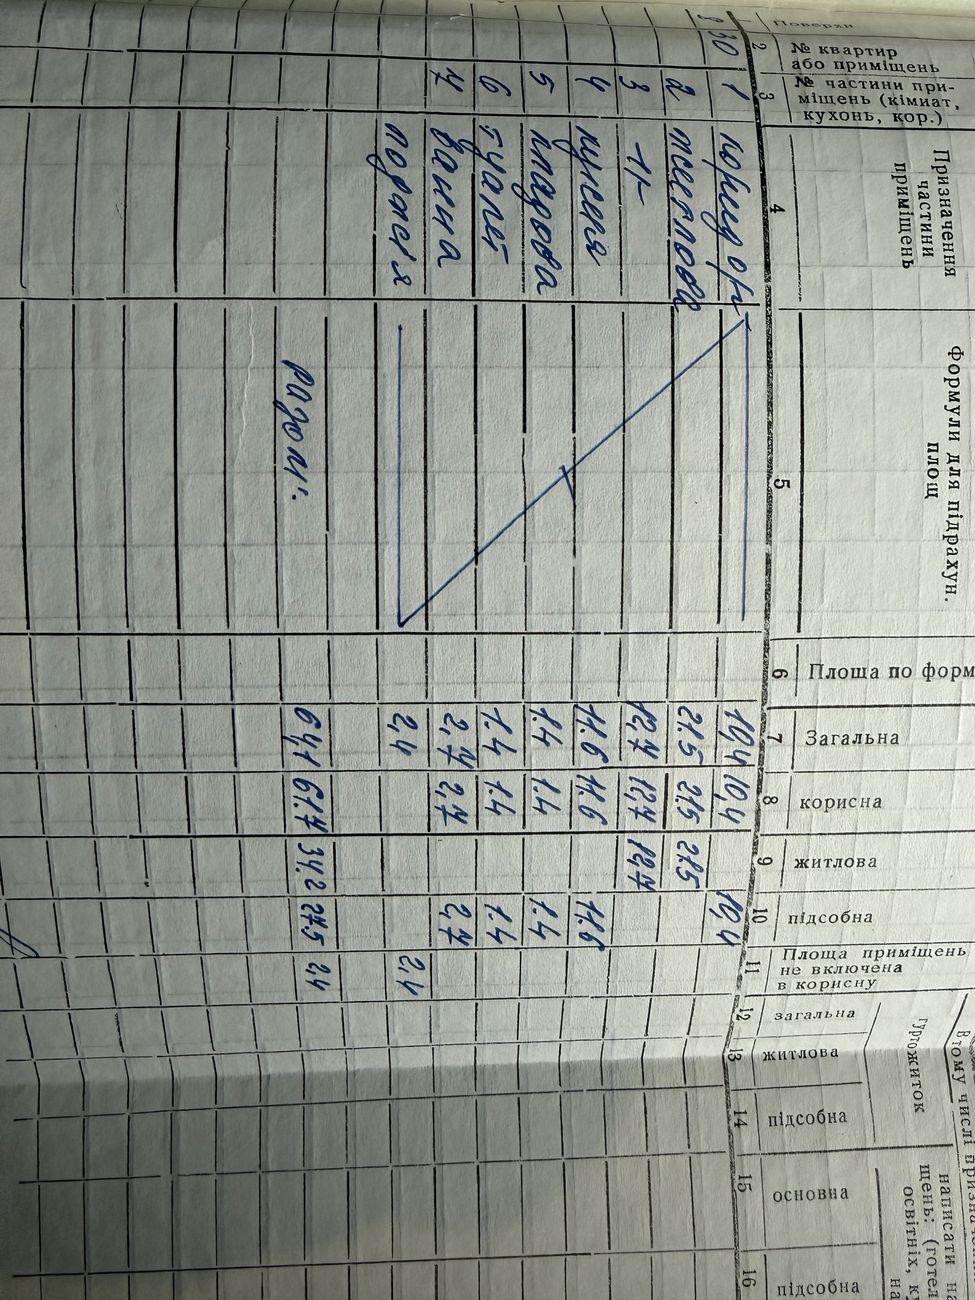 Поверхи
№ квартир
або приміщень
№ частини при-
міщень (кімнат,
кухонь, кор.)
Призначення
частини
приміщень
Формули для підрахун.
площ
Площа по форм
Загальна
корисна
житлова
підсобна
Площа приміщень
не включена
в корисну
В тому числі признач
гуртожиток
загальна
житлова
підсобна
написати на
щень: (готел
освітніх, ку
на
основна
підсобна
2 3 4 5 6 7 8 9 10 11 12 13 14 15 16
30 1 коридор 10,4 10,4 10,4
2 житлова 21.5 21.5 21.5
3 -//- 12,7 12,7 12,7
4 кухня 11.6 11.6 11.6
5 кладова 1.4 1.4 1.4
6 туалет 1.4 1.4 1.4
7 ванна 2,7 2,7 2,7
лоджія 2,4 2,4
разом: 64,1 61.7 34,2 27.5 2,4